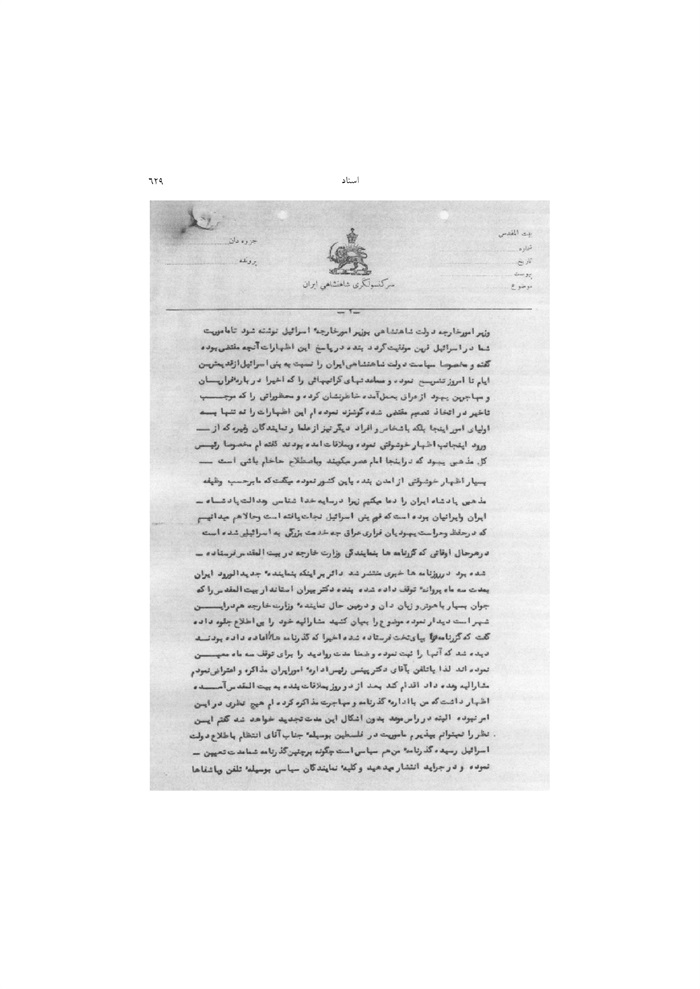 ٦٢٩
اسناد
بیت المقدس
شماره
تاریخ
پیوست
موضوع
جزوه دان
پرونده
سرکنسولگری شاهنشاهی ایران
وزیر امورخارجه دولت شاهنشاهی بوزیر امورخارجه اسرائیل نوشته شود تا ماموریت
شما در اسرائیل قرین موفقیت گردد بنده در پاسخ این اظهارات آنچه مقتضی بوده
گفته و مخصوصا سیاست دولت شاهنشاهی ایران را نسبت به بنی اسرائیل از قدیمترین
ایام تا امروز تشریح نموده و مساعدتهای گرانبهائی را که اخیرا در باره فراریان
و مهاجرین یهود از عراق بعمل آمده خاطرنشان کرده و محظوراتی را که موجب
تاخیر در اتخاذ تصمیم مقتضی شده گوشزد نموده ام این اظهارات را نه تنها به
اولیای امور اینجا بلکه باشخاص و افراد دیگر نیز از علما و نمایندگان وغیره که از —
ورود اینجانب اظهار خوشوقتی نموده وبملاقات آمده بودند گفته ام مخصوصا رئیس
کل مذهبی یهود که در اینجا امام عصر میگویند وباصطلاح حاخام باشی است —
بسیار اظهار خوشوقتی از آمدن بنده باین کشور نموده میگفت که ما برحسب وظیفه
مذهبی پادشاه ایران را دعا میکنیم زیرا در سایه خدا شناسی وعدالت پادشاه —
ایران وایرانیان بوده است که قوم بنی اسرائیل نجات یافته است وحالا هم میدانیم
که در حفظ وحراست یهودیان فراری عراق چه خدمت بزرگی به اسرائیلی شده است
در هر حال اوقاتی که گذرنامه ها بنمایندگی وزارت خارجه در بیت المقدس فرستاده —
شده بود در روزنامه ها خبری منتشر شد دائر بر اینکه بنماینده جدیدالورود ایران
بمدت سه ماه پروانه توقف داده شده بنده دکتر بیران استاندار بیت المقدس را که
جوان بسیار با هوش و زبان دان و در عین حال نماینده وزارت خارجه هم در این
شهر است دیدار نموده موضوع را بمیان کشید مشارالیه خود را بی اطلاع جلوه داده
گفت که گذرنامه ها بپای تخت فرستاده شده اخیرا که گذرنامه ها را اعاده داده بودند
دیده شد که آنها را ثبت نموده و ضمنا مدت روادید را برای توقف سه ماه معین
نموده اند لذا با تلفن با آقای دکتر رئیس اداره امور ایران مذاکره و اعتراض نمودم
مشارالیه وعده داد اقدام کند بعد از دو روز بملاقات بنده به بیت المقدس آمده
اظهار داشت که من با اداره گذرنامه و مهاجرت مذاکره کرده ام هیچ نظری در این
امر نبوده البته در راس موعد بدون اشکال این مدت تجدید خواهد شد گفتم این
نظر را نمیتوانم بپذیرم ماموریت در فلسطین بوسیله جناب آقای انتظام باطلاع دولت
اسرائیل رسیده گذرنامه من هم سیاسی است چگونه بر چنین گذرنامه شما مدت تعیین —
نموده و در جراید انتشار میدهید و کلیه نمایندگان سیاسی بوسیله تلفن ویا شفاها